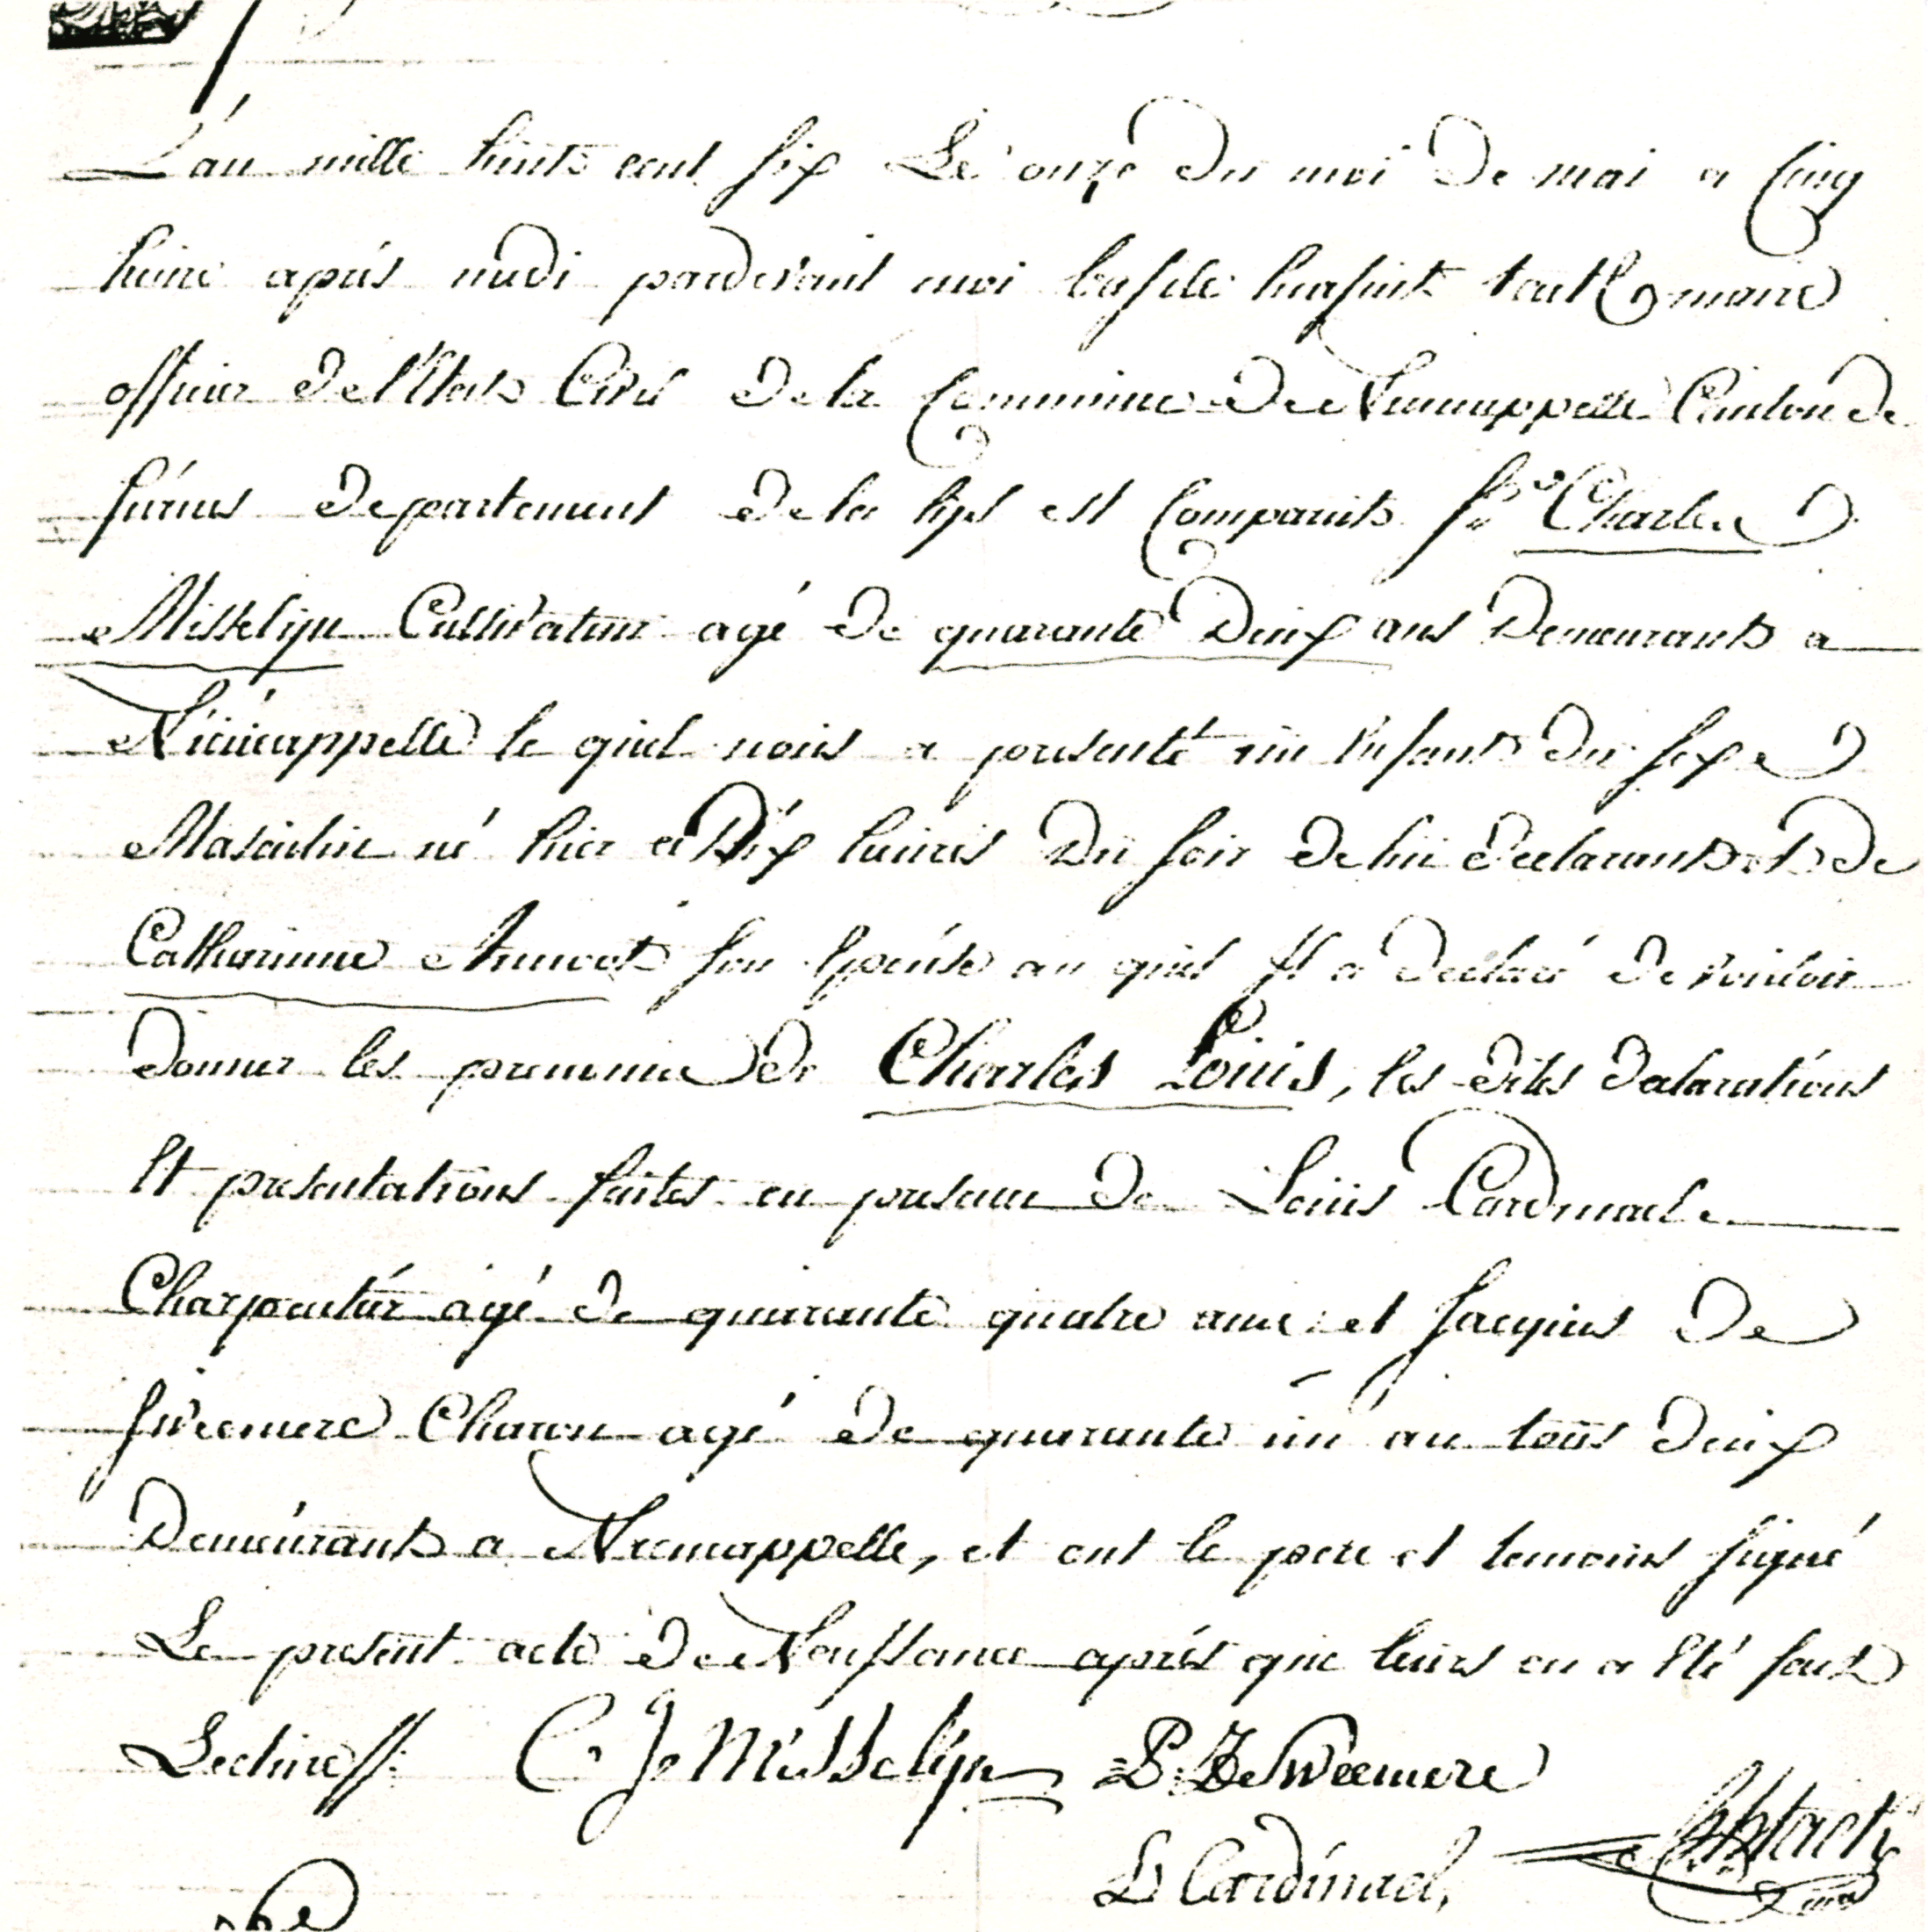 L'an mille huit cent six Le onze du moi de mai a Cinq
heure aprés midi pardevant moi maire
officier de l'Etat Civil de la Commune de Nieucappelle Canton de
furnes departement de la lys est Comparuit Sr Charles
Misselijn Cultivateur agé de quarante Deux ans Demeurant a
Nieucappelle le quel nous a presenté un Enfant du sexe
Masculin né hier a Dix heures du soir de lui declarant et de
Catharinne Annoot son Epouse au quel Il a declaré de vouloir
donner les prenomie de Charles Louis, les dites declarations
Et presentations faites en presence de Louis Cardinael
Charpentier agé de quarante quatre ans et Jacques De
Sweemere Charon agé de quarante un an tous deux
Demeurant a Nieucappelle, et ont le pere et temoins signé
Le present acte de Naissance aprés que leurs en a Eté fait
Lecture //.
C J Misselijn P. De Sweemere
L Cardinael,